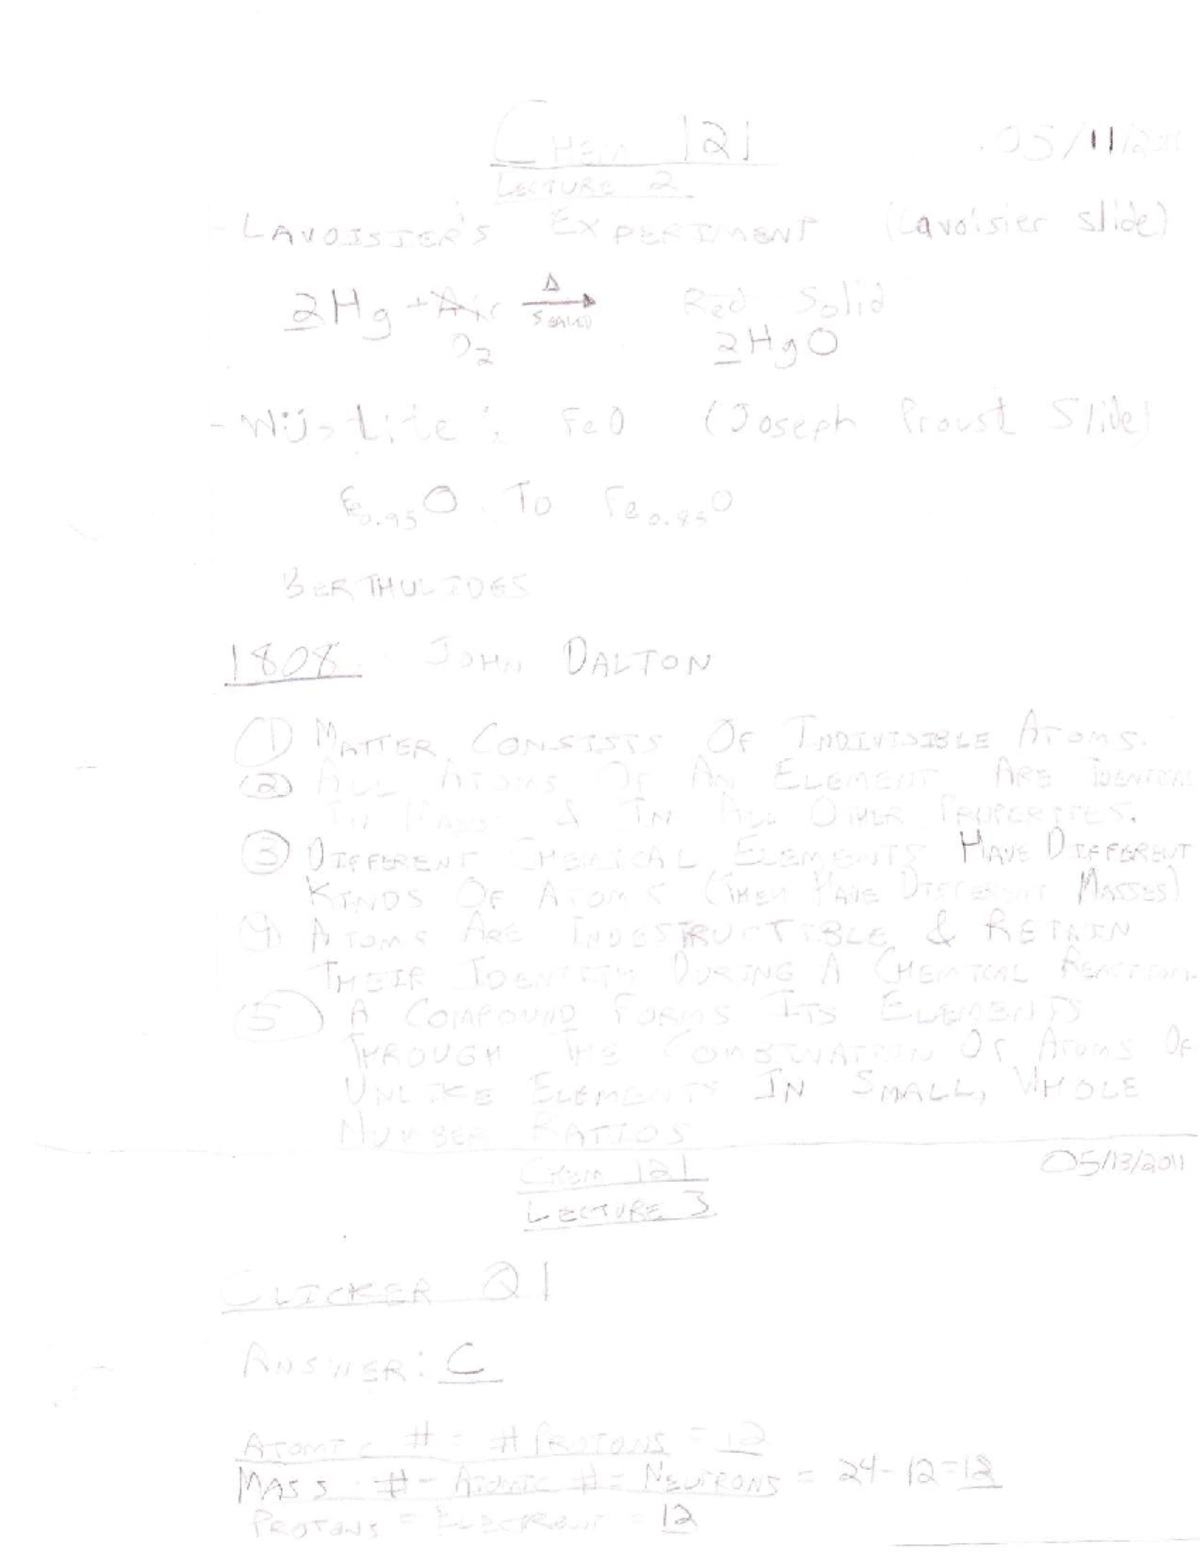 CHEM 121
05/11/2011
LECTURE 2
- LAVOISIER'S EXPERIMENT (Lavoisier slide)
2Hg + Air Δ SEALED Red Solid
O2 2HgO
- Wüstite : FeO (Joseph Proust Slide)
Fe0.95O TO Fe0.85O
BERTHOLLIDES
1808 : JOHN DALTON
① MATTER CONSISTS OF INDIVISIBLE ATOMS.
② ALL ATOMS OF AN ELEMENT ARE IDENTICAL
IN MASS & IN ALL OTHER PROPERTIES.
③ DIFFERENT CHEMICAL ELEMENTS HAVE DIFFERENT
KINDS OF ATOMS (THEY HAVE DIFFERENT MASSES)
④ ATOMS ARE INDESTRUCTIBLE & RETAIN
THEIR IDENTITY DURING A CHEMICAL REACTION.
⑤ A COMPOUND FORMS ITS ELEMENTS
THROUGH THE COMBINATION OF ATOMS OF
UNLIKE ELEMENTS IN SMALL, WHOLE
NUMBER RATIOS
CHEM 121
05/13/2011
LECTURE 3
CLICKER Q1
ANSWER: C
ATOMIC # = # PROTONS = 12
MASS # - ATOMIC # = NEUTRONS = 24-12=12
PROTONS = ELECTRONS = 12